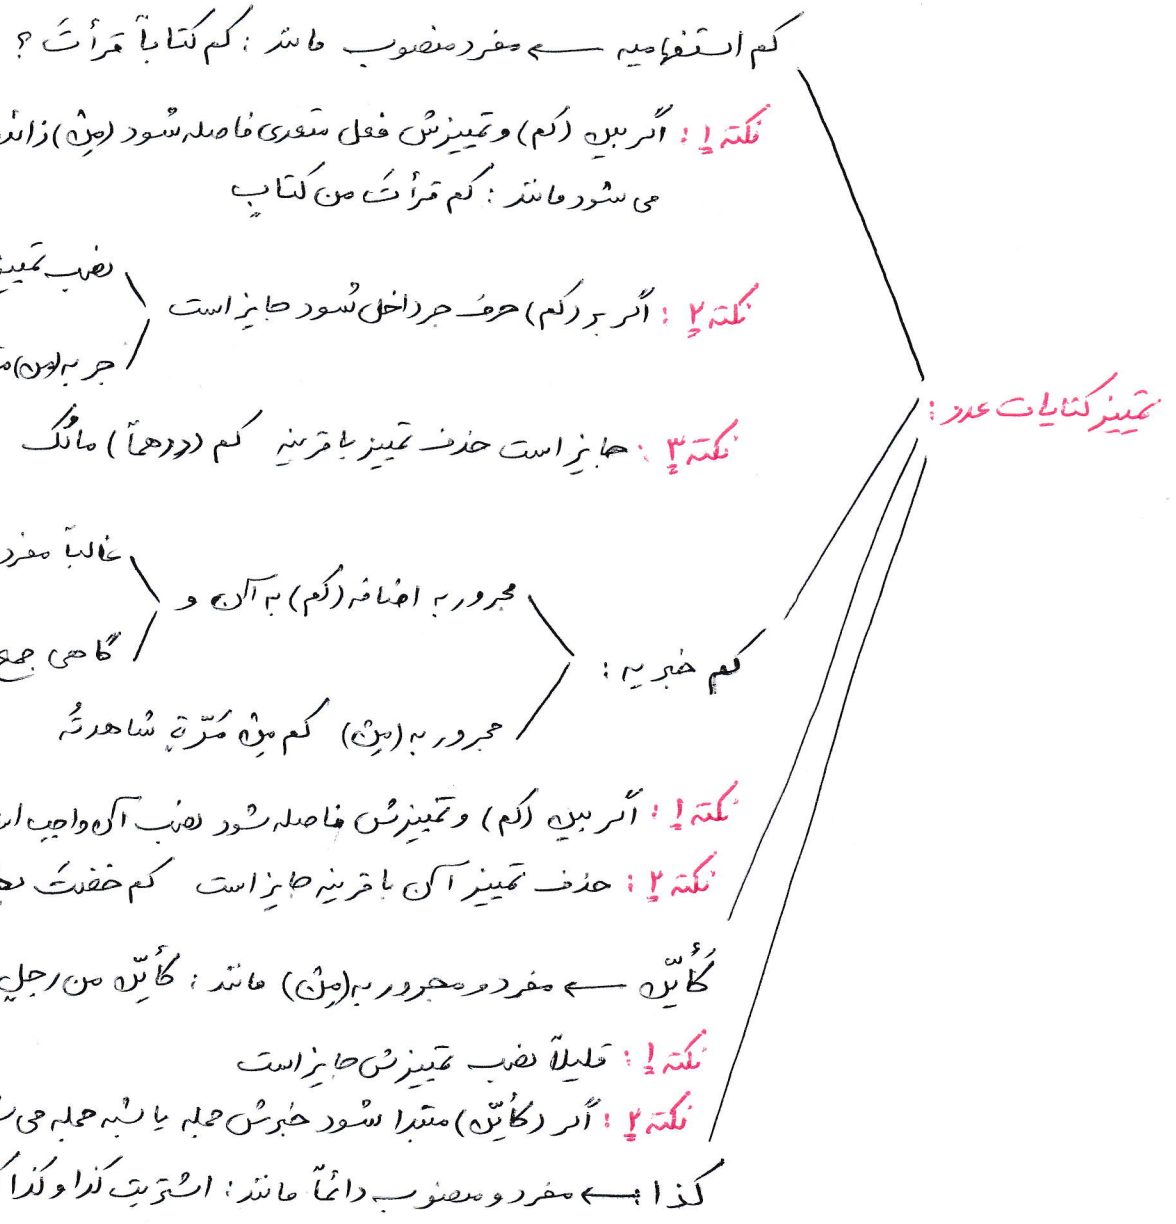 تمییز کنایات عدد :
کم استفهامیه ← مفرد منصوب مانند : کم کتاباً قرأتَ ؟
نکته ۱ : اگر بین (کم) و تمییزش فعل متعدی فاصله شود (مِنْ) زائد
می شود مانند : کم قرأتَ من کتابٍ
نکته ۲ : اگر بر (کم) حرف جر داخل شود جایز است
نصب تمییز
جر به (من)
نکته ۳ : جایز است حذف تمییز با قرینه کم (درهماً) مالُک
کم خبریه :
مجرور به اضافه (کم) به آن و
غالباً مفرد
گاهی جمع
مجرور به (مِنْ) کم مِنْ مَرّةٍ شاهدتُه
نکته ۱ : اگر بین (کم) و تمییزش فاصله شود نصب آن واجب
نکته ۲ : حذف تمییز آن با قرینه جایز است کم
کَأَیِّن ← مفرد و مجرور به (مِنْ) مانند : کأیّن من رجلٍ
نکته ۱ : قلیلاً نصب تمییزش جایز است
نکته ۲ : اگر (کأیّن) مبتدا شود خبرش جمله یا شبه جمله می
کذا ← مفرد و منصوب دائماً مانند : اشتریت کذا و کذا